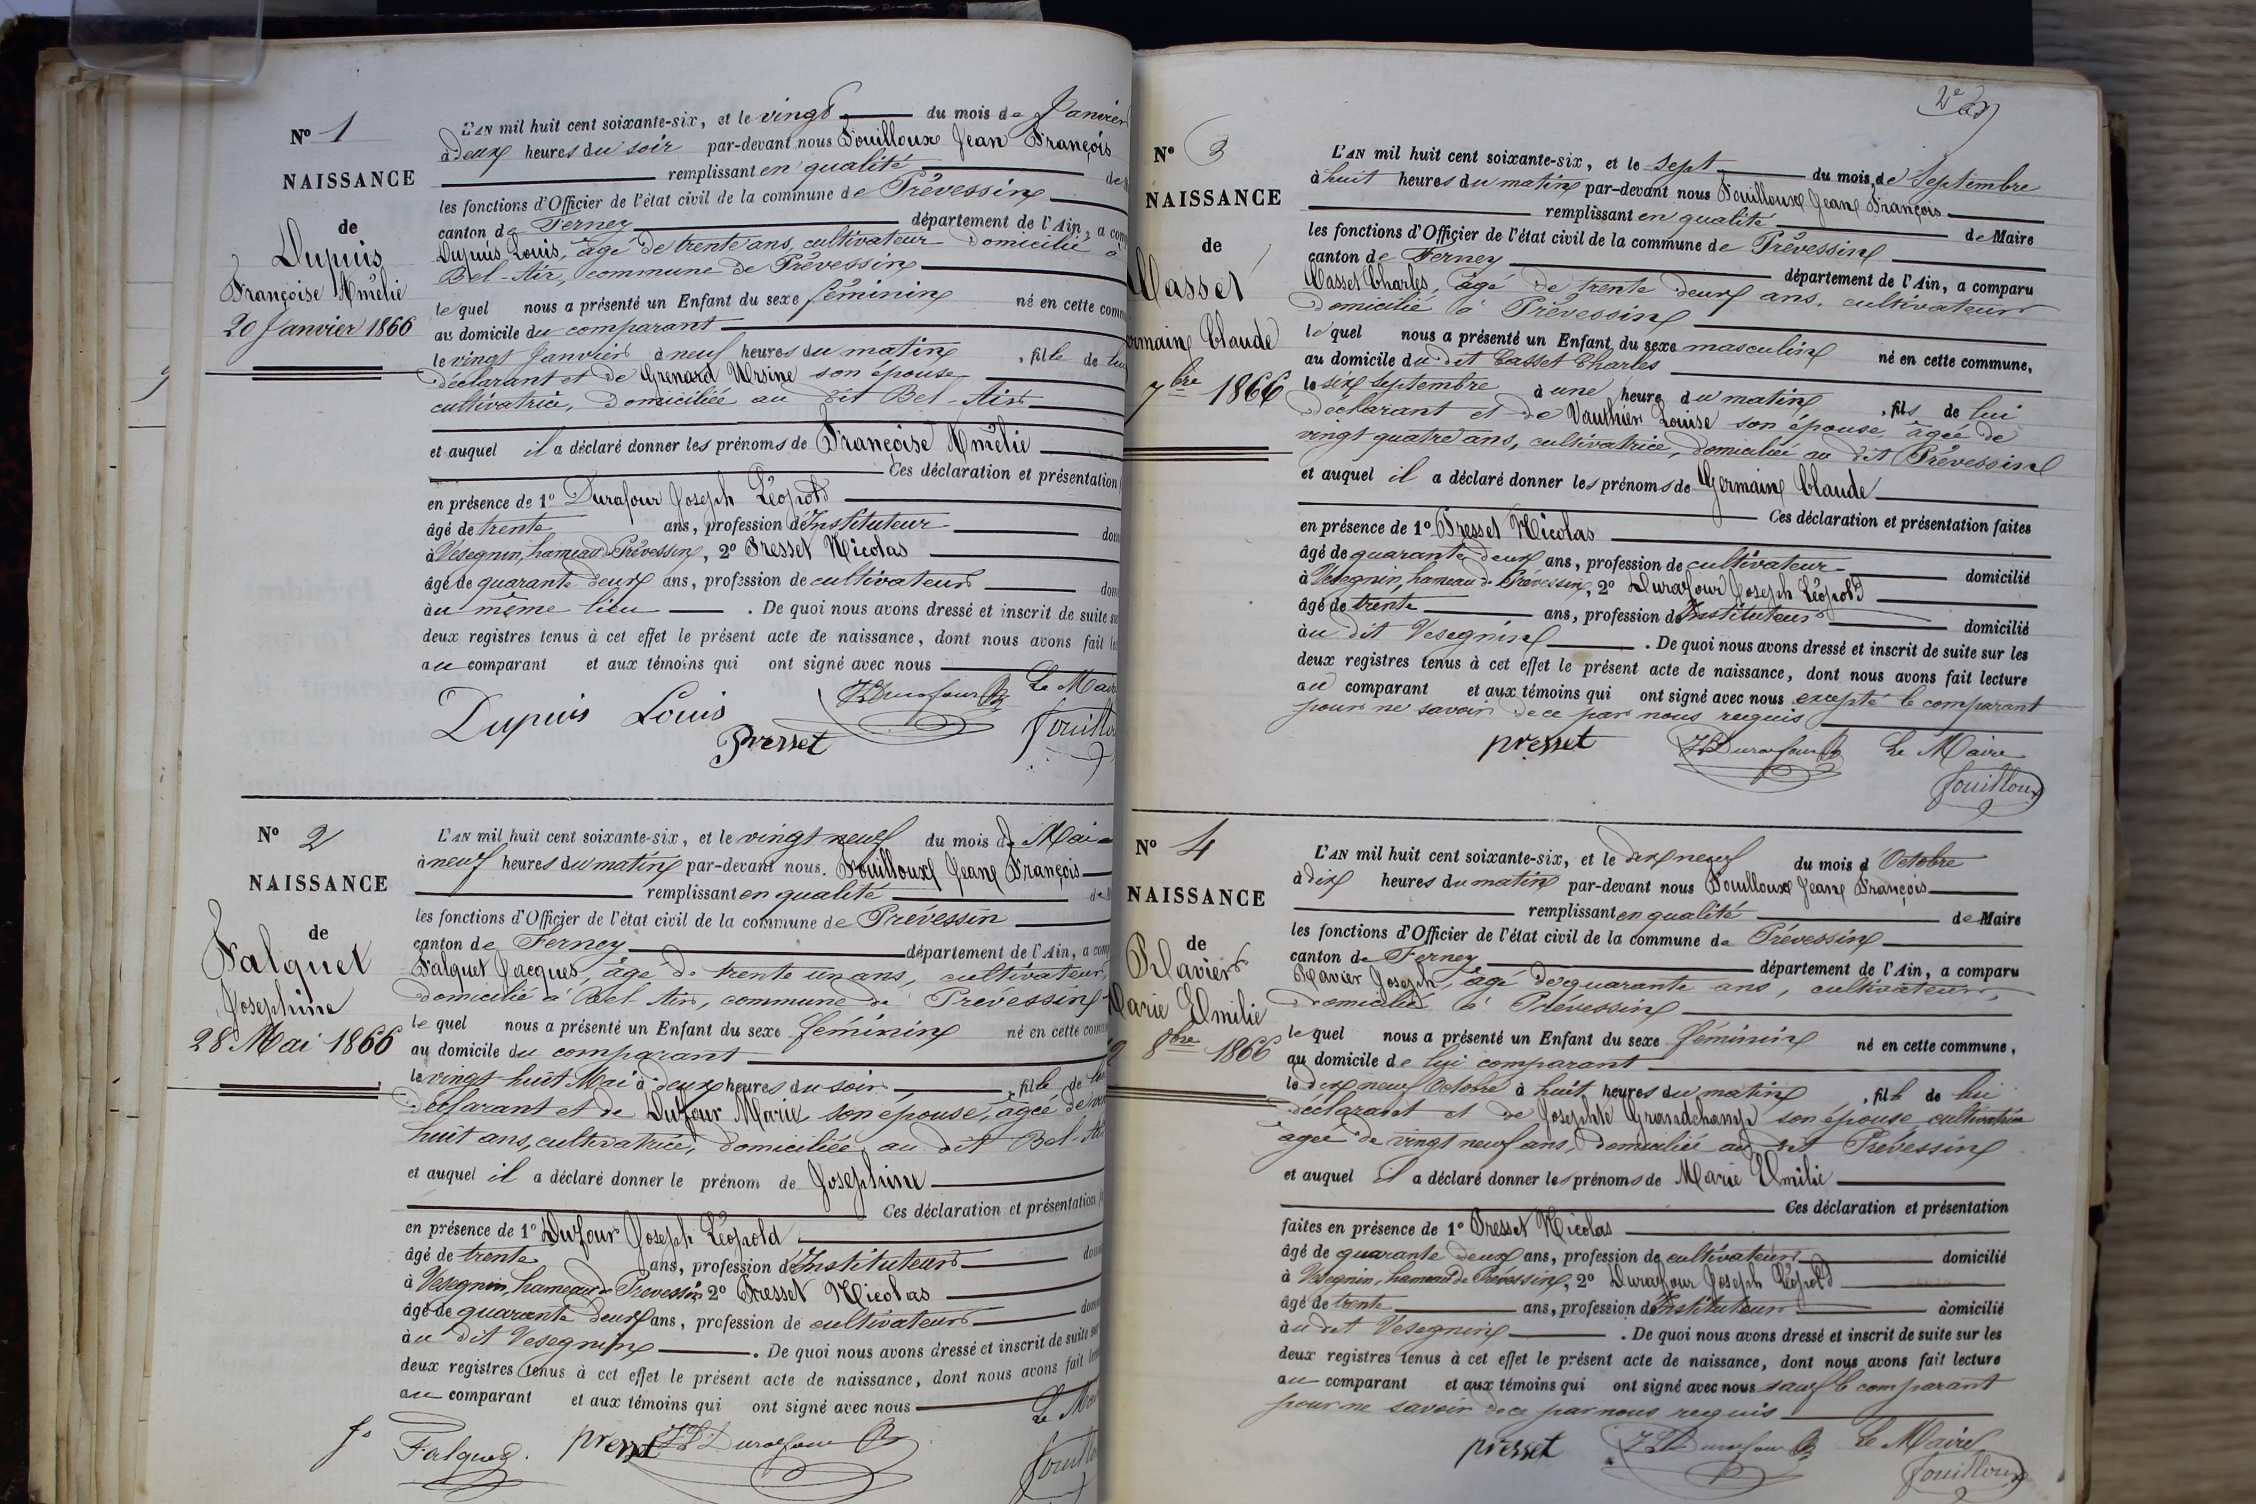 N° 1
NAISSANCE
de
Dupuis
Françoise Amélie
20 Janvier 1866
L'AN mil huit cent soixante-six, et le vingt du mois de Janvier
à deux heures du soir par-devant nous Fouilloux Jean François
remplissant en qualité de
les fonctions d'Officier de l'état civil de la commune de Prévessin
canton de Ferney département de l'Ain, a
Dupuis Louis, âgé de trente ans, cultivateur domicilié à
Bel-Air, commune de Prévessin
le quel nous a présenté un Enfant du sexe féminin né en cette
au domicile du comparant
le vingt Janvier à neuf heures du matin, fille de
déclarant et de Grenard Ursine son épouse
cultivatrice, domiciliée au dit Bel-Air
et auquel il a déclaré donner les prénoms de Françoise Amélie
Ces déclaration et présentation
en présence de 1° Durafour Joseph Léopold
âgé de trente ans, profession d'Instituteur
à Vésegnin, hameau de Prévessin, 2° Presset Nicolas
âgé de quarante deux ans, profession de cultivateur
au même lieu. De quoi nous avons dressé et inscrit de suite
deux registres tenus à cet effet le présent acte de naissance, dont nous avons fait
au comparant et aux témoins qui ont signé avec nous
Le Maire
Dupuis Louis
JLDurafour
Presset
N° 2
NAISSANCE
de
Falquet
Josephine
28 Mai 1866
L'AN mil huit cent soixante-six, et le vingt neuf du mois de Mai
à neuf heures du matin par-devant nous Fouilloux Jean François
remplissant en qualité
les fonctions d'Officier de l'état civil de la commune de Prévessin
canton de Ferney département de l'Ain, a
Falquet Jacques, âgé de trente un ans, cultivateur,
domicilié à Bel Air, commune de Prévessin
le quel nous a présenté un Enfant du sexe féminin né en cette
au domicile du comparant
le vingt-huit Mai à deux heures du soir, fille de
déclarant et de Dufour Marie son épouse, âgée de
huit ans, cultivatrice, domiciliée au dit Bel-Air
et auquel il a déclaré donner le prénom de Josephine
Ces déclaration et présentation
en présence de 1° Dufour Joseph Léopold
âgé de trente ans, profession d'Instituteur
à Vesegnin, hameau de Prevessin 2° Presset Nicolas
âgé de quarante deux ans, profession de cultivateur
au dit Vesegnin. De quoi nous avons dressé et inscrit de suite
deux registres tenus à cet effet le présent acte de naissance, dont nous avons fait
au comparant et aux témoins qui ont signé avec nous
Falquet
presset
JLDurafour
N° 3
NAISSANCE
de
Casset
Claude
7bre 1866
L'AN mil huit cent soixante-six, et le sept du mois de Septembre
à huit heures du matin par-devant nous Fouilloux Jean François
remplissant en qualité de Maire
les fonctions d'Officier de l'état civil de la commune de Prévessin
canton de Ferney département de l'Ain, a comparu
Casset Charles, âgé de trente deux ans, cultivateur
domicilié à Prévessin
le quel nous a présenté un Enfant du sexe masculin né en cette commune,
au domicile du dit Casset Charles
le six Septembre à une heure du matin, fils de lui
déclarant et de Vauthier Louise son épouse, âgée de
vingt quatre ans, cultivatrice, domiciliée au dit Prévessin
et auquel il a déclaré donner les prénoms de Germain Claude
Ces déclaration et présentation faites
en présence de 1° Presset Nicolas
âgé de quarante deux ans, profession de cultivateur domicilié
à Vesegnin, hameau de Prévessin, 2° Durafour Joseph Léopold
âgé de trente ans, profession d'Instituteur domicilié
au dit Vesegnin. De quoi nous avons dressé et inscrit de suite sur les
deux registres tenus à cet effet le présent acte de naissance, dont nous avons fait lecture
au comparant et aux témoins qui ont signé avec nous excepté le comparant
pour ne savoir de ce par nous requis
presset
JLDurafour
Le Maire
fouilloux
N° 4
NAISSANCE
de
Marie Emilie
8bre 1866
L'AN mil huit cent soixante-six, et le dix neuf du mois d'Octobre
à dix heures du matin par-devant nous Fouilloux Jean François
remplissant en qualité de Maire
les fonctions d'Officier de l'état civil de la commune de Prévessin
canton de Ferney département de l'Ain, a comparu
Joseph, âgé de quarante ans, cultivateur,
domicilié à Prévessin
le quel nous a présenté un Enfant du sexe féminin né en cette commune,
au domicile de lui comparant
le dix neuf Octobre à huit heures du matin, fille de lui
déclarant et de Josephte Grandchamp son épouse cultivatrice
âgée de vingt neuf ans, domiciliée au dit Prévessin
et auquel il a déclaré donner les prénoms de Marie Emilie
Ces déclaration et présentation
faites en présence de 1° Presset Nicolas
âgé de quarante deux ans, profession de cultivateur domicilié
à Vesegnin, hameau de Prévessin, 2° Durafour Joseph Léopold
âgé de trente ans, profession d'Instituteur domicilié
au dit Vesegnin. De quoi nous avons dressé et inscrit de suite sur les
deux registres tenus à cet effet le présent acte de naissance, dont nous avons fait lecture
au comparant et aux témoins qui ont signé avec nous sauf le comparant
pour ne savoir de ce par nous requis
presset
JLDurafour
Le Maire
fouilloux